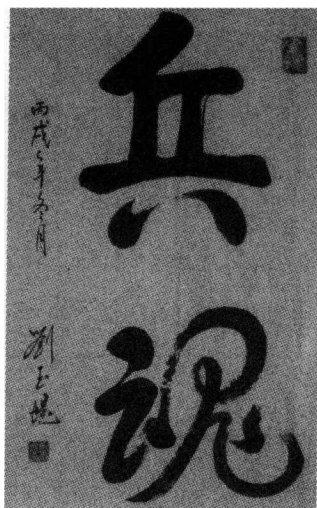 兵魂
丙戌年冬月
劉玉堤